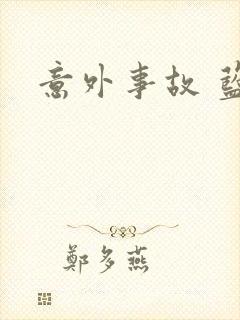 意外事故
鄭多燕